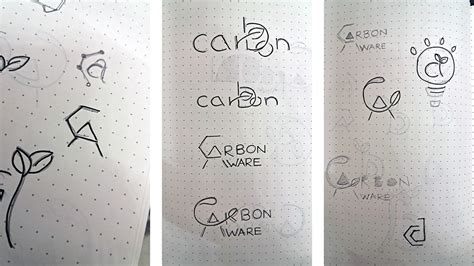 a
CA
carbon
carbon
CARBON
AWARE
CARBON
AWARE
CARBON
AWARE
a
CA
CARBON
AWARE
cd